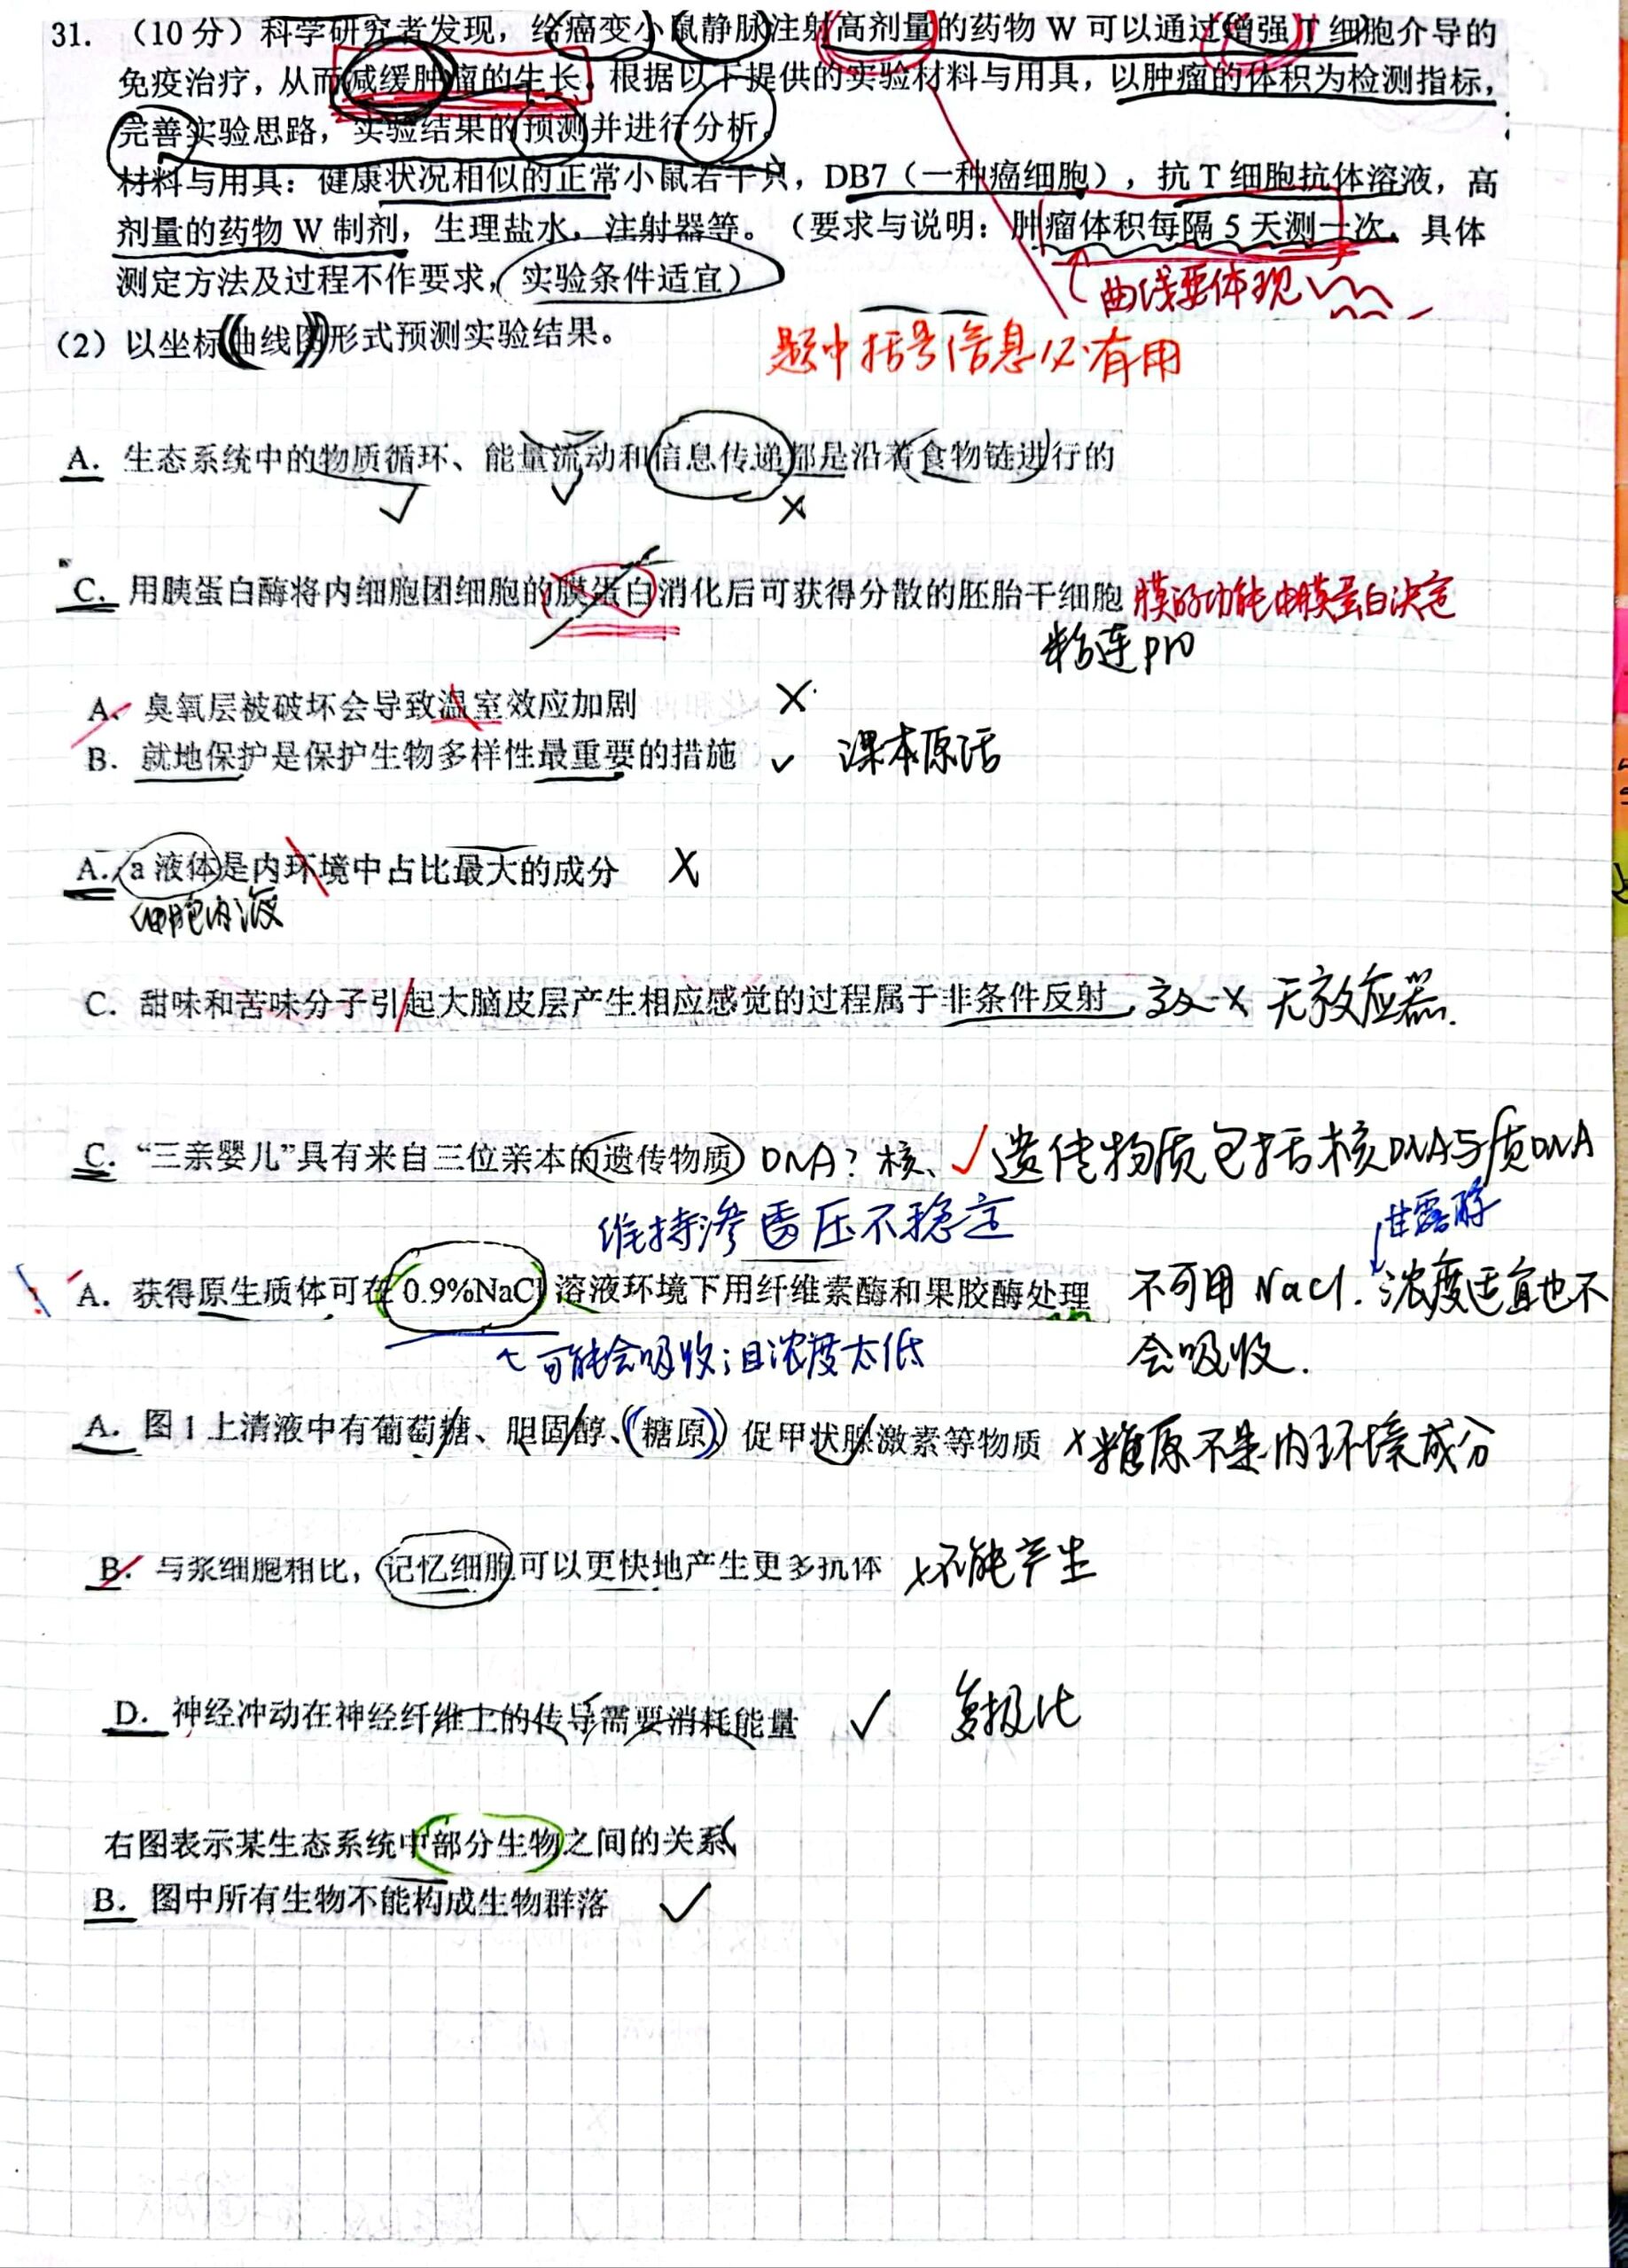 31. （10 分）科学研究者发现，给癌变小鼠静脉注射高剂量的药物 W 可以通过增强 T 细胞介导的
免疫治疗，从而减缓肿瘤的生长。根据以下提供的实验材料与用具，以肿瘤的体积为检测指标，
完善实验思路，实验结果的预测并进行分析。
材料与用具：健康状况相似的正常小鼠若干只，DB7（一种癌细胞），抗 T 细胞抗体溶液，高
剂量的药物 W 制剂，生理盐水，注射器等。（要求与说明：肿瘤体积每隔 5 天测一次，具体
测定方法及过程不作要求，实验条件适宜）
曲线要体现
（2）以坐标曲线图形式预测实验结果。
题中括号信息必有用
A. 生态系统中的物质循环、能量流动和信息传递都是沿着食物链进行的
✓ ✓ ×
C. 用胰蛋白酶将内细胞团细胞的膜蛋白消化后可获得分散的胚胎干细胞 膜的功能由膜蛋白决定
粘连pro
A. 臭氧层被破坏会导致温室效应加剧 ×
B. 就地保护是保护生物多样性最重要的措施 ✓ 课本原话
A. a 液体是内环境中占比最大的成分 ×
细胞内液
C. 甜味和苦味分子引起大脑皮层产生相应感觉的过程属于非条件反射 × 无效应器.
C. “三亲婴儿”具有来自三位亲本的遗传物质 DNA？核、 ✓ 遗传物质包括核DNA与质DNA
维持渗透压不稳定 甘露醇
A. 获得原生质体可在 0.9%NaCl 溶液环境下用纤维素酶和果胶酶处理 不可用 NaCl. 浓度适宜也不
可能会吸收；且浓度太低 会吸收.
A. 图 1 上清液中有葡萄糖、胆固醇、糖原、促甲状腺激素等物质 × 糖原不是内环境成分
B. 与浆细胞相比，记忆细胞可以更快地产生更多抗体 ×不能产生
D. 神经冲动在神经纤维上的传导需要消耗能量 ✓ 复极化
右图表示某生态系统中部分生物之间的关系
B. 图中所有生物不能构成生物群落 ✓